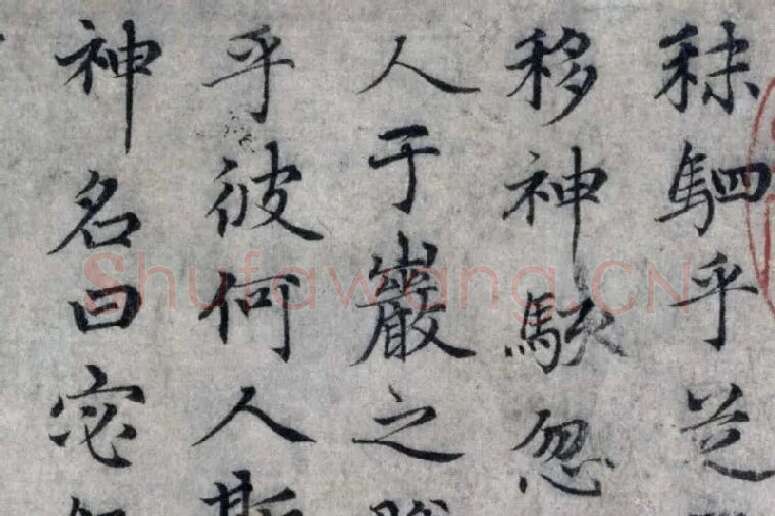 秣駟乎芝
移神駭忽
人于巖之
乎彼何人斯
神名曰宓
Shufawang.CN